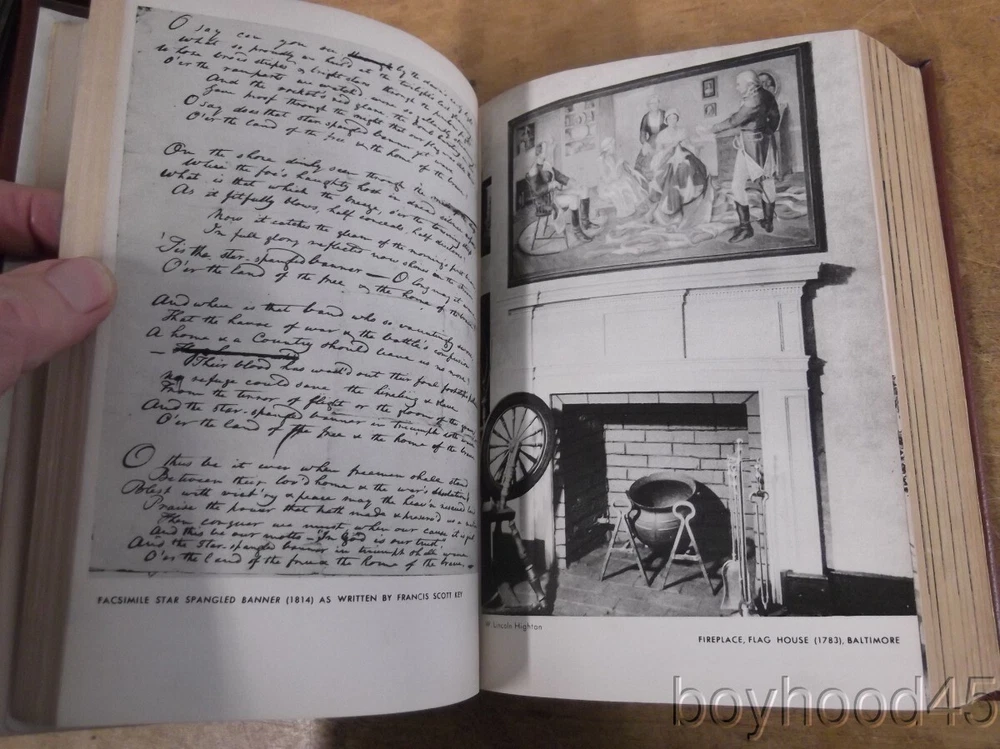 O say can you see through by the dawn's early
What so proudly we hail'd at the twilight's last
whose broad stripes & bright stars through the
O'er the ramparts we watch'd, were so gallantly
And the rocket's red glare, the
Gave proof through the night that our flag was
O say does that star-spangled banner yet wave
O'er the land of the free & the home of the
On the shore dimly seen through the
Where the foe's haughty host in dread silence
What is that which the breeze, o'er the towering
As it fitfully blows, half conceals, half discloses
Now it catches the gleam of the morning's first
In full glory reflected now shines in the
'Tis the star-spangled banner — O long may it
O'er the land of the free & the home of the
And where is that band who so vauntingly swore,
That the havoc of war & the battle's confusion
A home & a Country should leave us no more?
— Their blood has wash'd out their foul footsteps
No refuge could save the hireling & slave
From the terror of flight or the gloom of the
And the star-spangled banner in triumph doth
O'er the land of the free & the home of the
O thus be it ever when freemen shall stand
Between their lov'd home & the war's desolation!
Blest with vict'ry & peace may the heav'n rescued
Praise the power that hath made & preserv'd us a
Then conquer we must, when our cause it is just,
And this be our motto — "In God is our trust"
And the star-spangled banner in triumph shall wave
O'er the land of the free & the home of the brave.
FACSIMILE STAR SPANGLED BANNER (1814) AS WRITTEN BY FRANCIS SCOTT KEY
W Lincoln Highton
FIREPLACE, FLAG HOUSE (1783), BALTIMORE
boyhood45